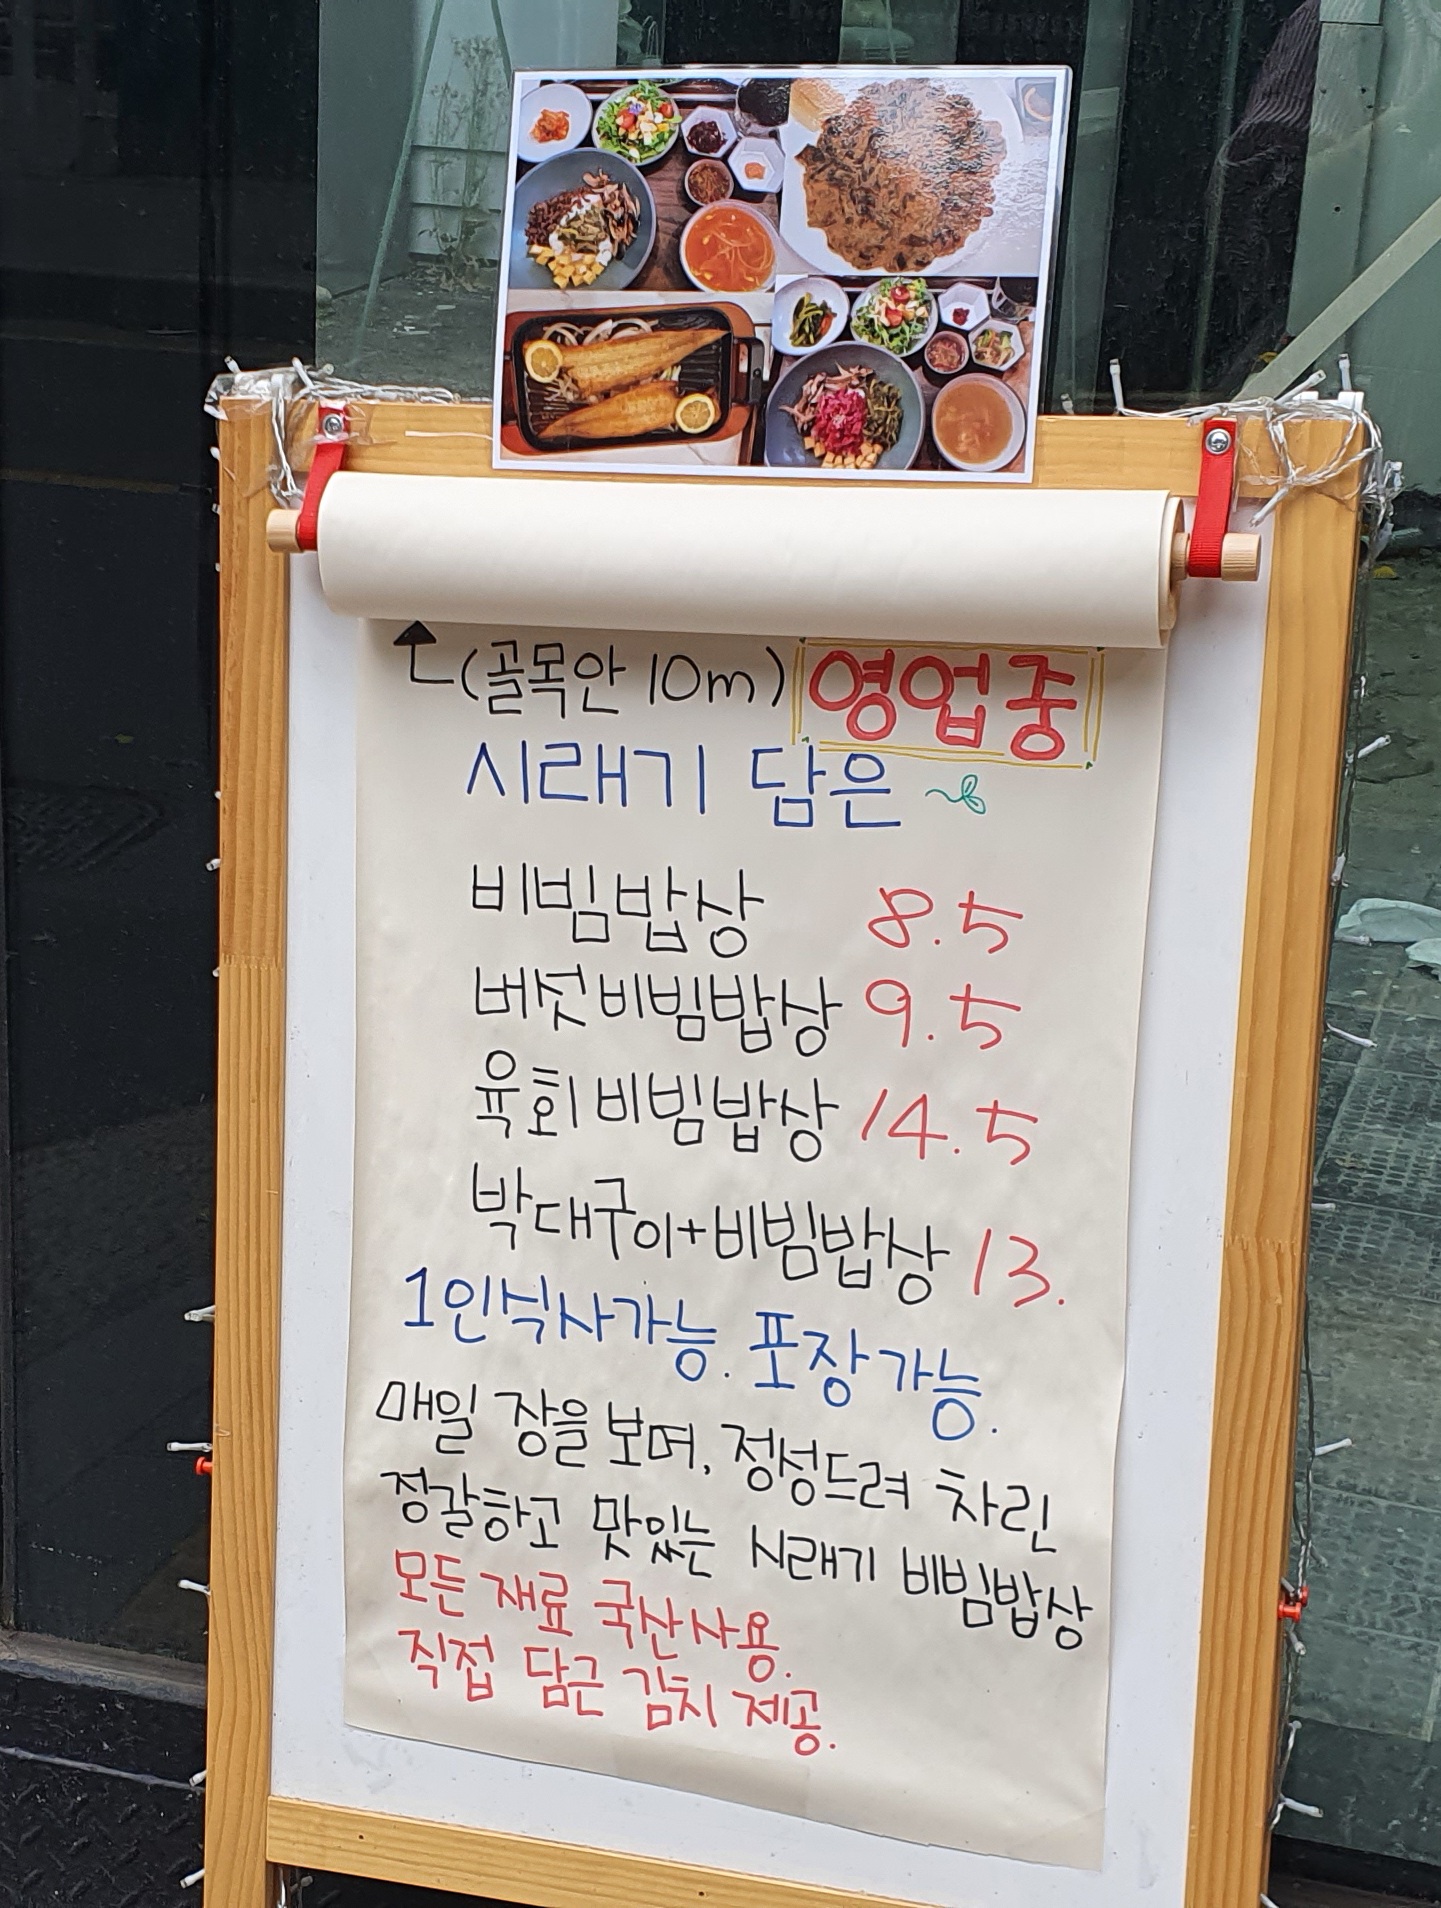 (골목안 10m) 영업중
시래기 담은
비빔밥상 8.5
버섯비빔밥상 9.5
육회비빔밥상 14.5
박대구이+비빔밥상 13.
1인식사가능. 포장가능.
매일 장을 보며, 정성드려 차린
정갈하고 맛있는 시래기 비빔밥상
모든 재료 국산사용.
직접 담근 김치 제공.